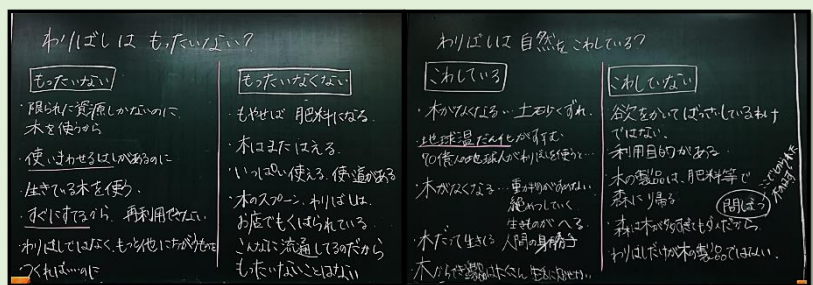 わりばしは もったいない?
もったいない
・限られた資源しかないのに
木を使うから
・使いまわせるはしがあるのに
・生きている木を使う
・すぐにすてるから、再利用できない
・わりばしではなく、もっと他にちがうものを
つくれば…のに
もったいなくない
・もやせば 肥料になる。
・木はまた はえる。
・いっぱい使える。使い道がある
・木のスプーン、わりばしは、
お店でもくばられている
こんなに流通してるのだから
もったいないことはない
わりばしは 自然をこわしている?
こわしている
・木がなくなる… 土砂くずれ.
・地球温だん化がすすむ
90億人の地球人がわりばしを使うと…
・木がなくなる…
絶めつしていく
生きものがへる.
・木だって生きてる 人間の身勝手
こわしていない
欲をかいてばっさいしているわけ
ではない.
・利用目的がある
・木の製品は、肥料等で
森に帰る
間ばつ
・森は木が多すぎてもダメだから
・わりばしだけが木の製品ではない.